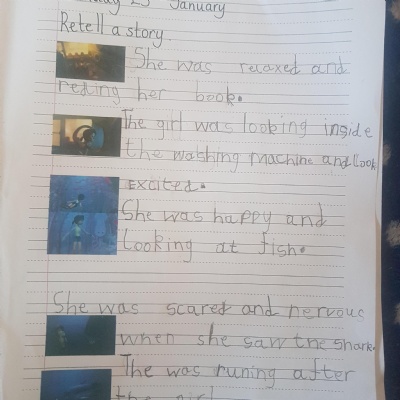 January
Retell a story.
She was relaxed and
reding her book.
The girl was looking inside
the washing machine and look
excited.
She was happy and
looking at fish.
She was scared and nervous
when she saw the shark.
The was runing after
the girl